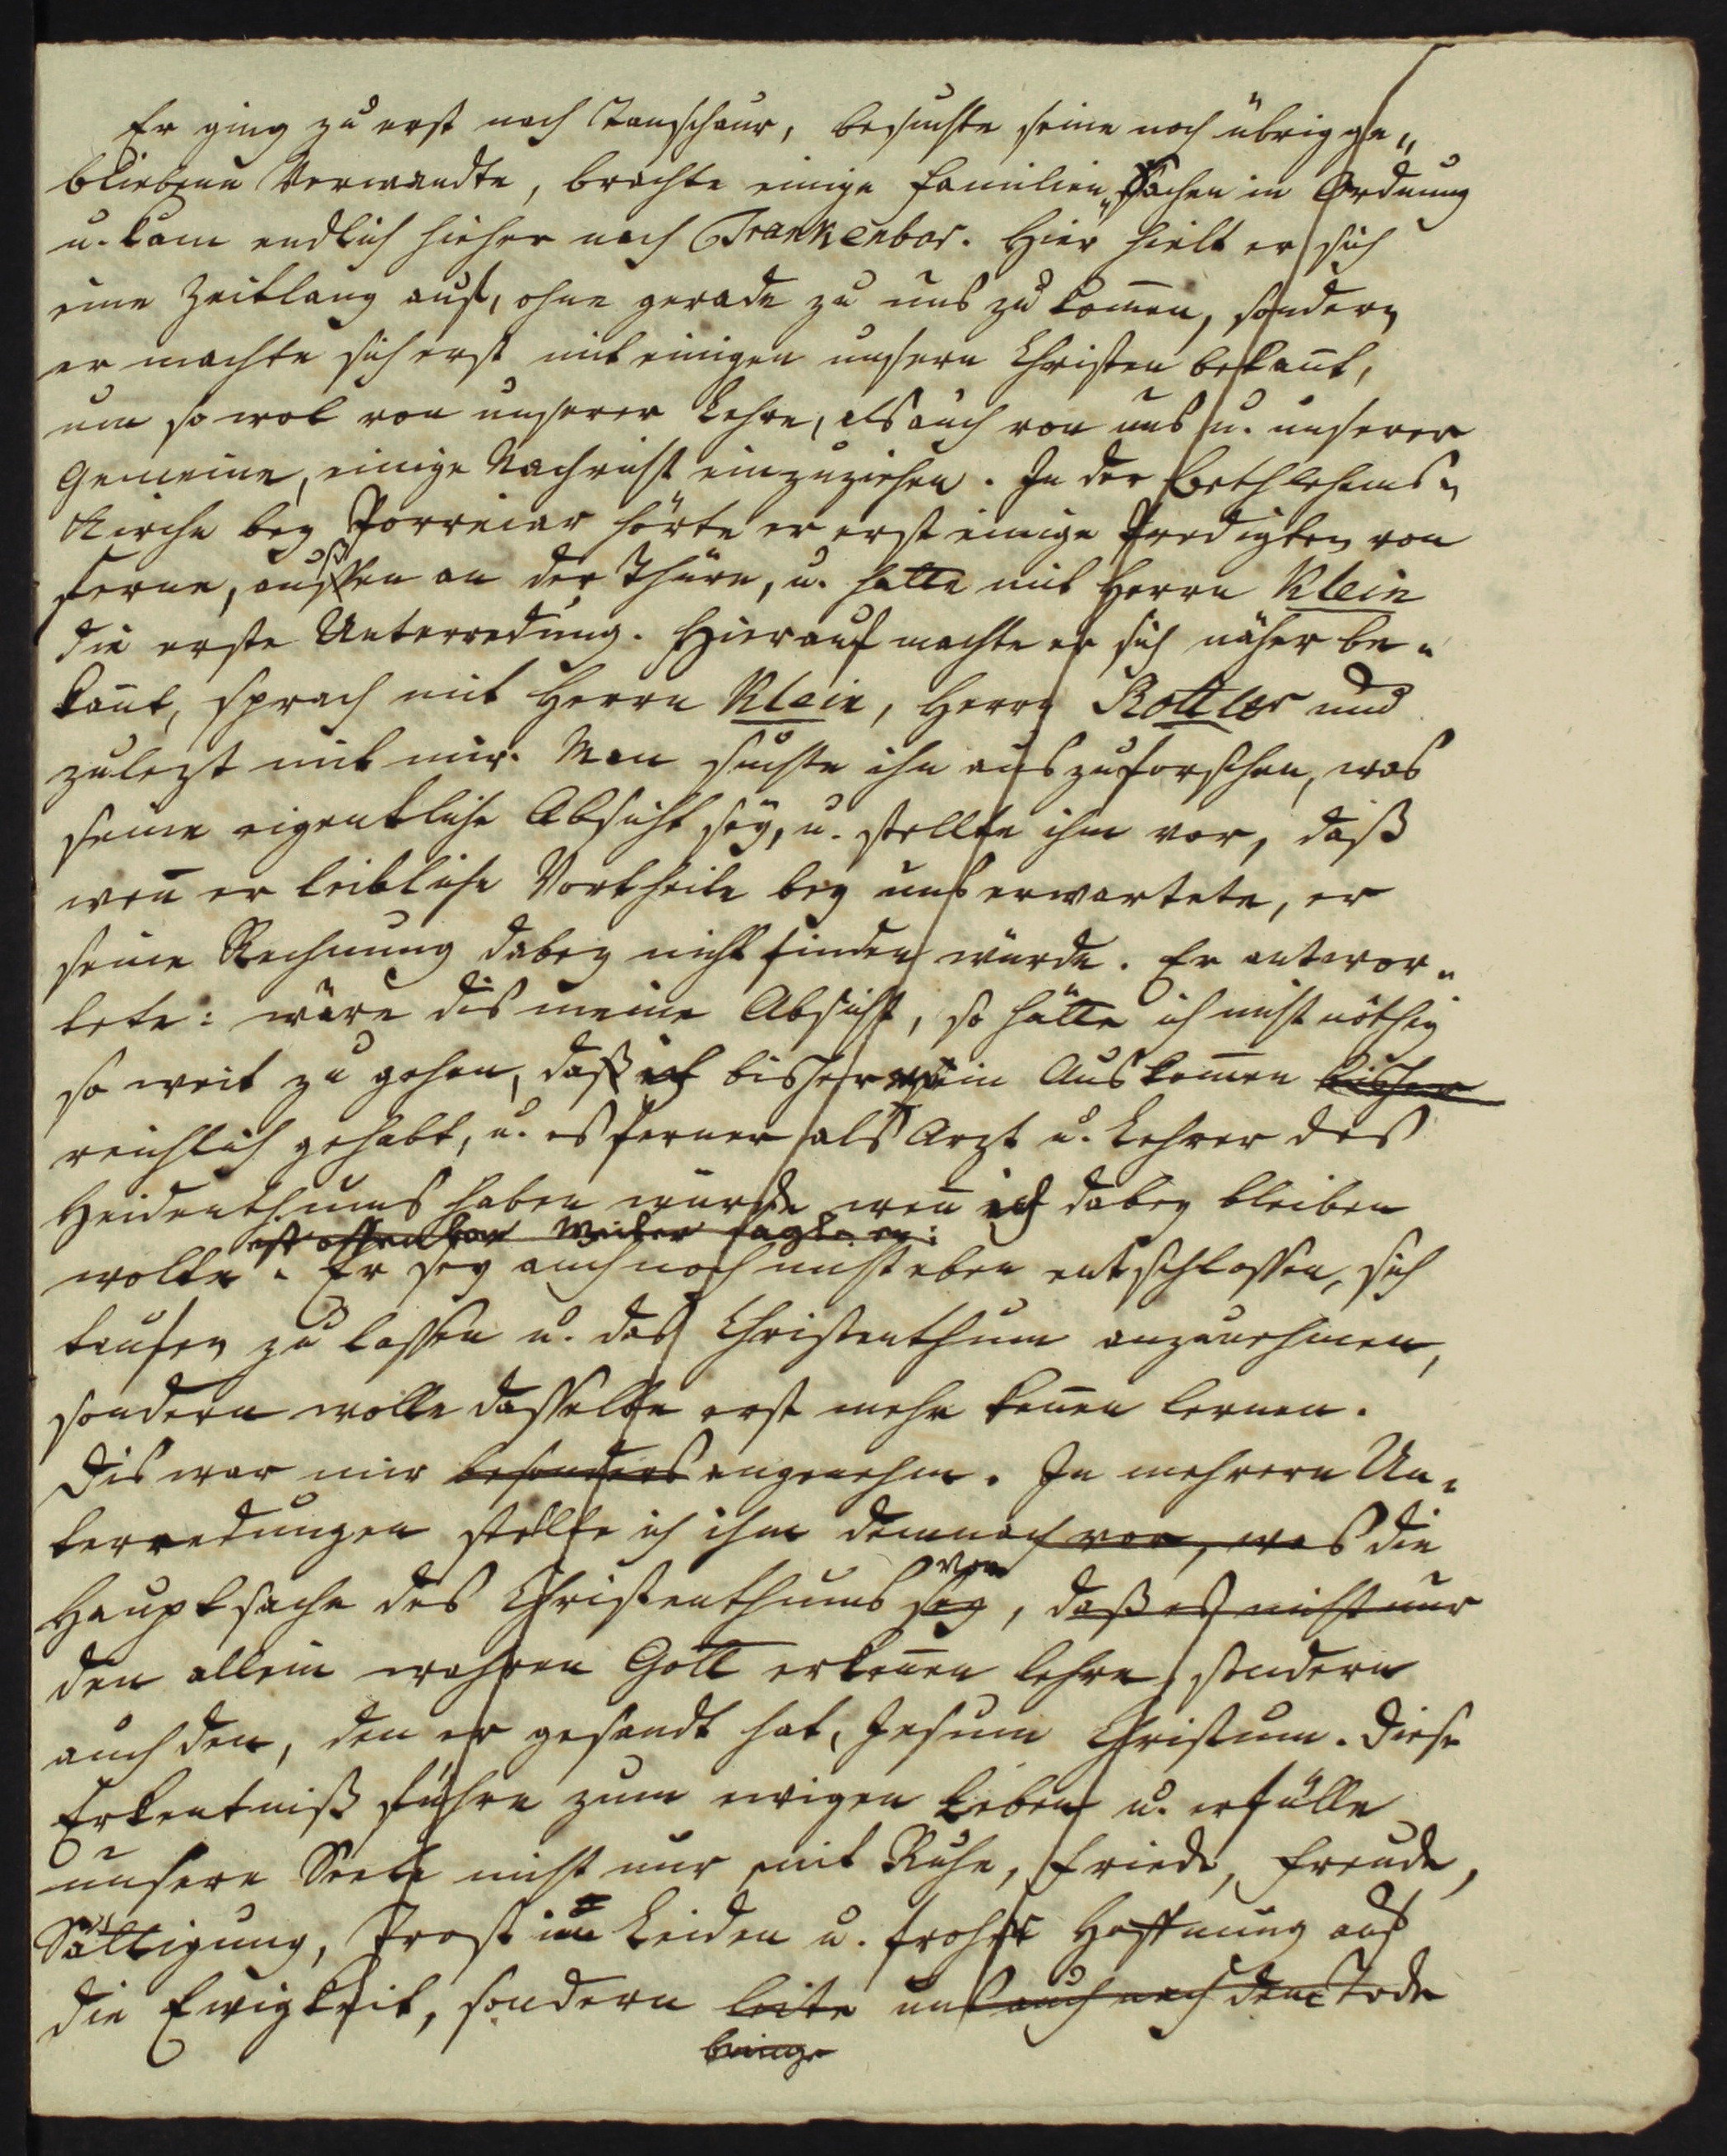 Er ging zu erst nach Tanschaur, besuchte seine noch übrig ge„
bliebene Verwandte, brachte einige Familien„Sachen in Ordnung
u. kam endlich hieher nach Trankenbar. Hier hielt er sich
eine Zeitlang auf, ohne gerade zu uns zu kom̄en, sondern
er machte sich erst mit einigen unsern Christen bekan̄t,
um so wol von unserer Lehre, als auch von uns u. unserer
Gemeine, einige Nachricht einzuziehen. In der Bethlehems„
Kirche bey Porreiar hörte er erst einige Predigten von
ferne, aussen an der Thüre, u. hatte mit Herrn Klein
die erste Unterredung. Hierauf machte er sich näher be„
kan̄t, sprach mit Herrn Klein, Herrn Rottler und
zulezt mit mir. Man suchte ihn auszuforschen, was
seine eigentliche Absicht sey, u. stellte ihm vor, daß
wen̄ er leibliche Vortheile bey uns erwartete, er
seine Rechnung dabey nicht finden würde. Er antwor„
tete: wäre dis meine Absicht, so hätte ich nicht nöthig
so weit zu gehen, daß ich bisher mein Auskom̄en bisher
reichlich gehabt, u. es ferner als Arzt u. Lehrer des
Heidenthums haben würde wen̄ ich dabey bleiben
ist offenbar weiter sagte er:
wolte. Er sey auch noch nicht eben entschlossen, sich
taufen zu lassen u. das Christenthum anzunehmen,
sondern wolle dasselbe erst mehr ken̄en lernen.
Dis war mir besonders angenehm. In mehrern Un„
terredungen stellte ich ihm demnach vor, was die
vor
Hauptsache des Christenthums sey, daß es nicht nur
den allein wahren Gott erken̄en lehre, sondern
auch den, den er gesandt hat, Jesum Christum. Diese
Erkentniß führe zum ewigen Leben u. erfülle
unsere Seele nicht nur mit Ruhe, Friede, Freude,
Sättigung, Trost im Leiden u. froher Hoffnung auf
die Ewigkeit, sondern leite uns auch nach dem Tode
bringe